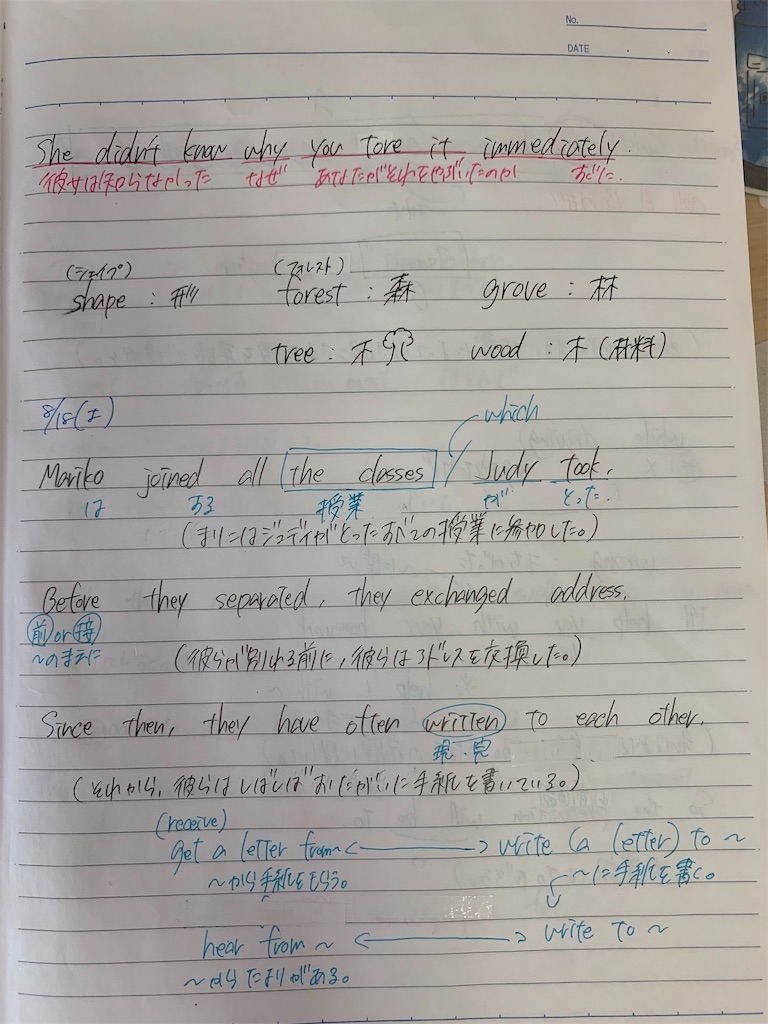 No.
DATE
She didn't know why you tore it immediately.
彼女は知らなかった なぜ あなたがそれをやぶいたのか すぐに.
(シェイプ) (フォレスト)
shape : 形 forest : 森 grove : 林
tree : 木 wood : 木 (材料)
8/18(土)
which
Mariko joined all the classes / Judy took.
は する 授業 が とった.
(まりこはジュディがとったすべての授業に参加した。)
Before they separated, they exchanged address.
前 or 接
~のまえに (彼らが別れる前に, 彼らはアドレスを交換した。)
Since then, they have often written to each other.
現・完
(それから, 彼らはしばしばおたがいに手紙を書いている。)
(receive)
get a letter from ←→ write (a letter) to ~
~から手紙をもらう。 ~に手紙を書く。
hear from ~ ←→ write to ~
~からたよりがある。